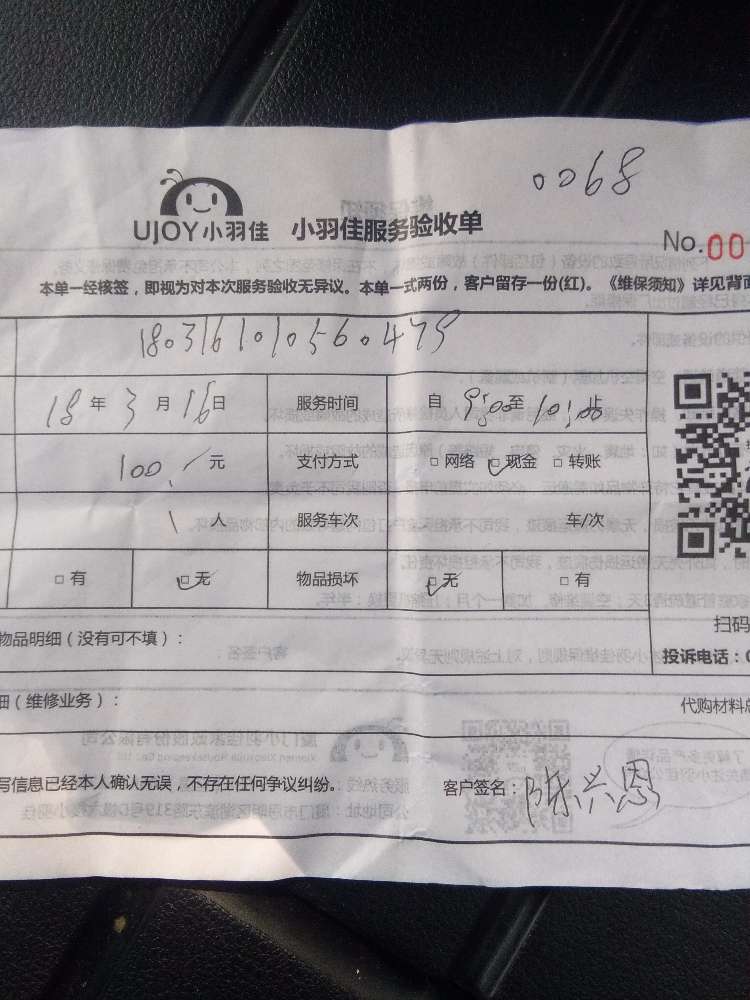 0068
UJOY小羽佳 小羽佳服务验收单
No.00
本单一经核签，即视为对本次服务验收无异议。本单一式两份，客户留存一份(红)。《维保须知》详见背面
1803161010560475
18年3月16日 服务时间 自9:00至10:00止
100.元 支付方式 □网络 ☑现金 □转账
1人 服务车次 车/次
□有 ☑无 物品损坏 ☑无 □有
扫码
物品明细（没有可不填）：
投诉电话：0
细（维修业务）：
代购材料总
写信息已经本人确认无误，不存在任何争议纠纷。 客户签名：陈兴恩